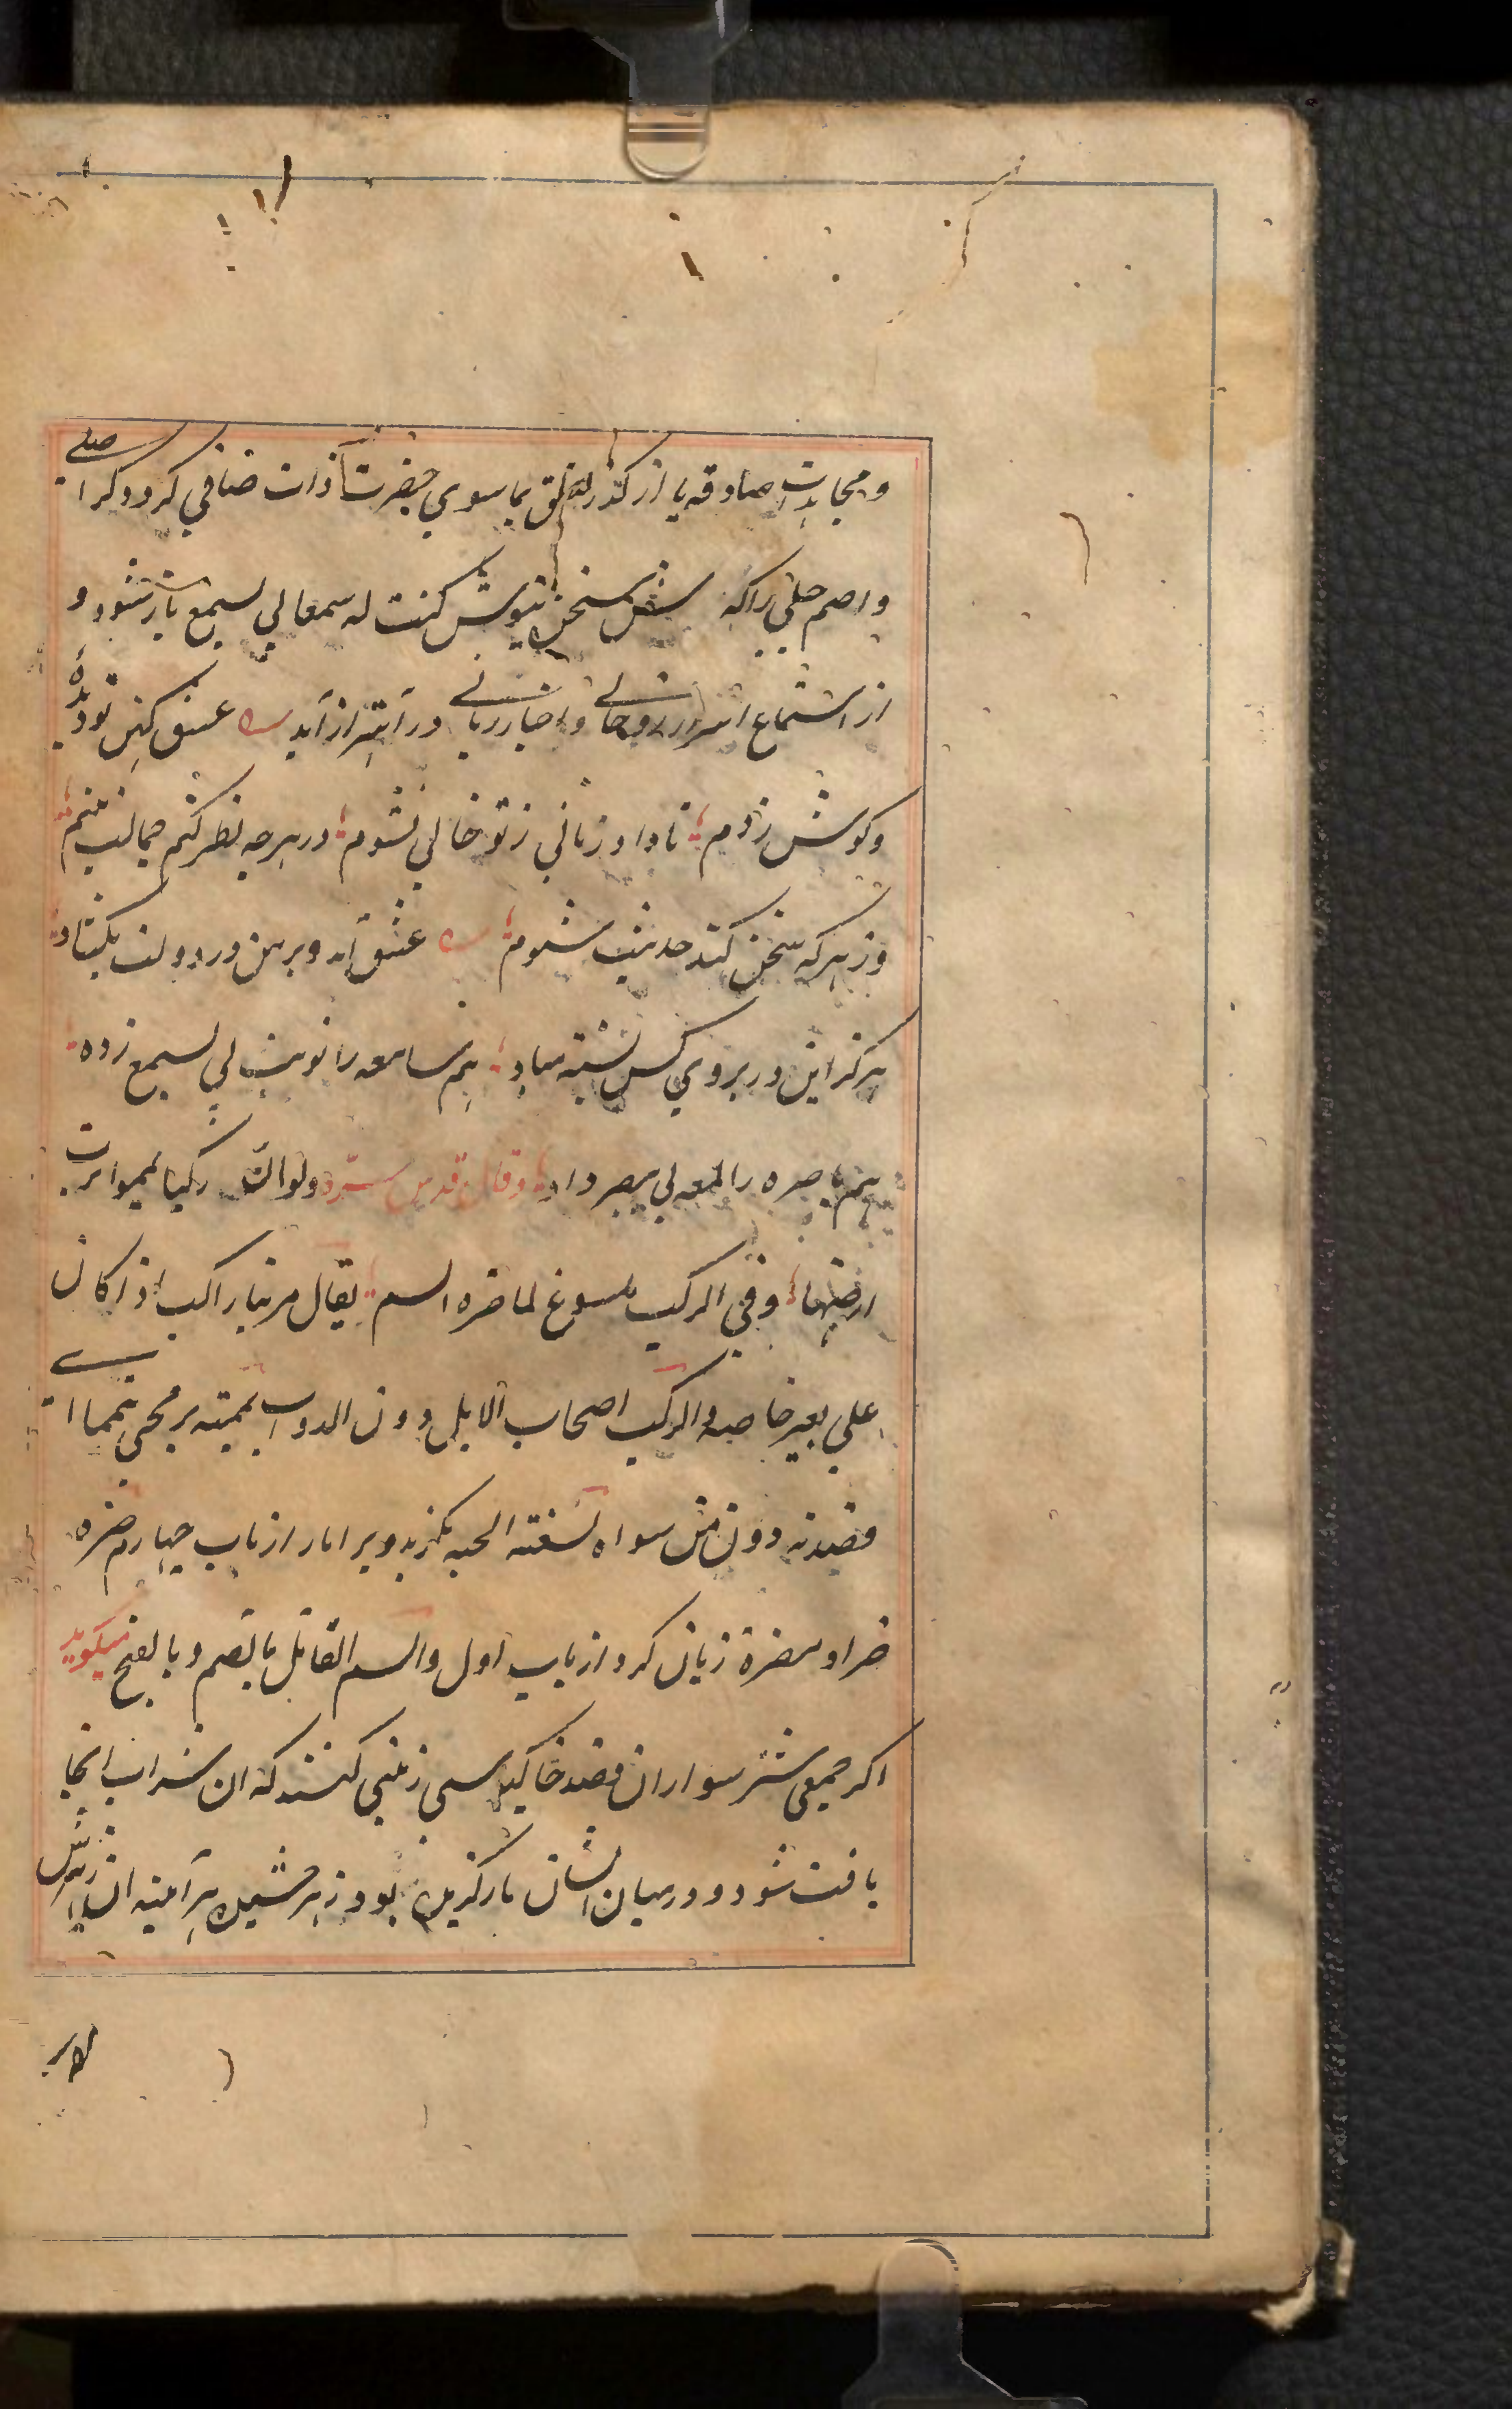 و مجاهدت صادقه باز از کدر تعلق بماسوی حضرت ذات صافی کردد کر اصلی
و اصم جبلی را گوش سخن نیوش کنت له سمعا لی یسمع باز شود و
از استماع اسرار روحانی و اخبار ربانی در اهتزاز آید عشق کهن تو دیده
و کوش زدم تا دا و زمانی ز تو خالی نشوم در هرچه نظر کنم جمالت بینم
وز هر که سخن کند حدیثت شنوم عشق آمد و بر من در دولت بکشاد
هرکز این در بروی کس بسته مباد هم سامعه را نوبت لی یسمع زد
هم باصره را لمعه لی یبصر داد و قال قدس سره ولو ان رکبا یمموا ترب
ارضها و فی الرکب ملسوع لما ضره السم یقال مر بنا راکب اذا کان
علی بعیر خاصه و الرکب اصحاب الابل دون الدواب یممته برمحی تیمما ای
قصدته دون من سواه لسعته الحیه بکزید ویرا مار از باب چهارم ضره
ضرا و مضرة زیان کرد از باب اول و السم القاتل بالضم و بالفتح میکوید
اکر جمعی شتر سواران قصد خاک زمینی کنند که ان شراب انجا
یافت شود و در میان ایشان مارکزیده بود زهر چشیده هر آینه ان زهرش